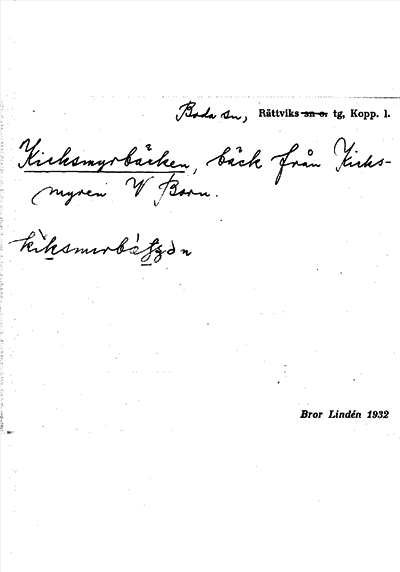 Boda sn, Rättviks sn o. tg, Kopp. l.
Kicksmyrbäcken, bäck från Kicks-
myren V Born.
Bror Lindén 1932